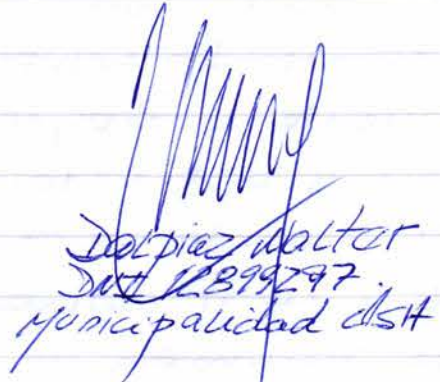 Dalpiaz Walter
DNI 12899297.
Municipalidad dSH